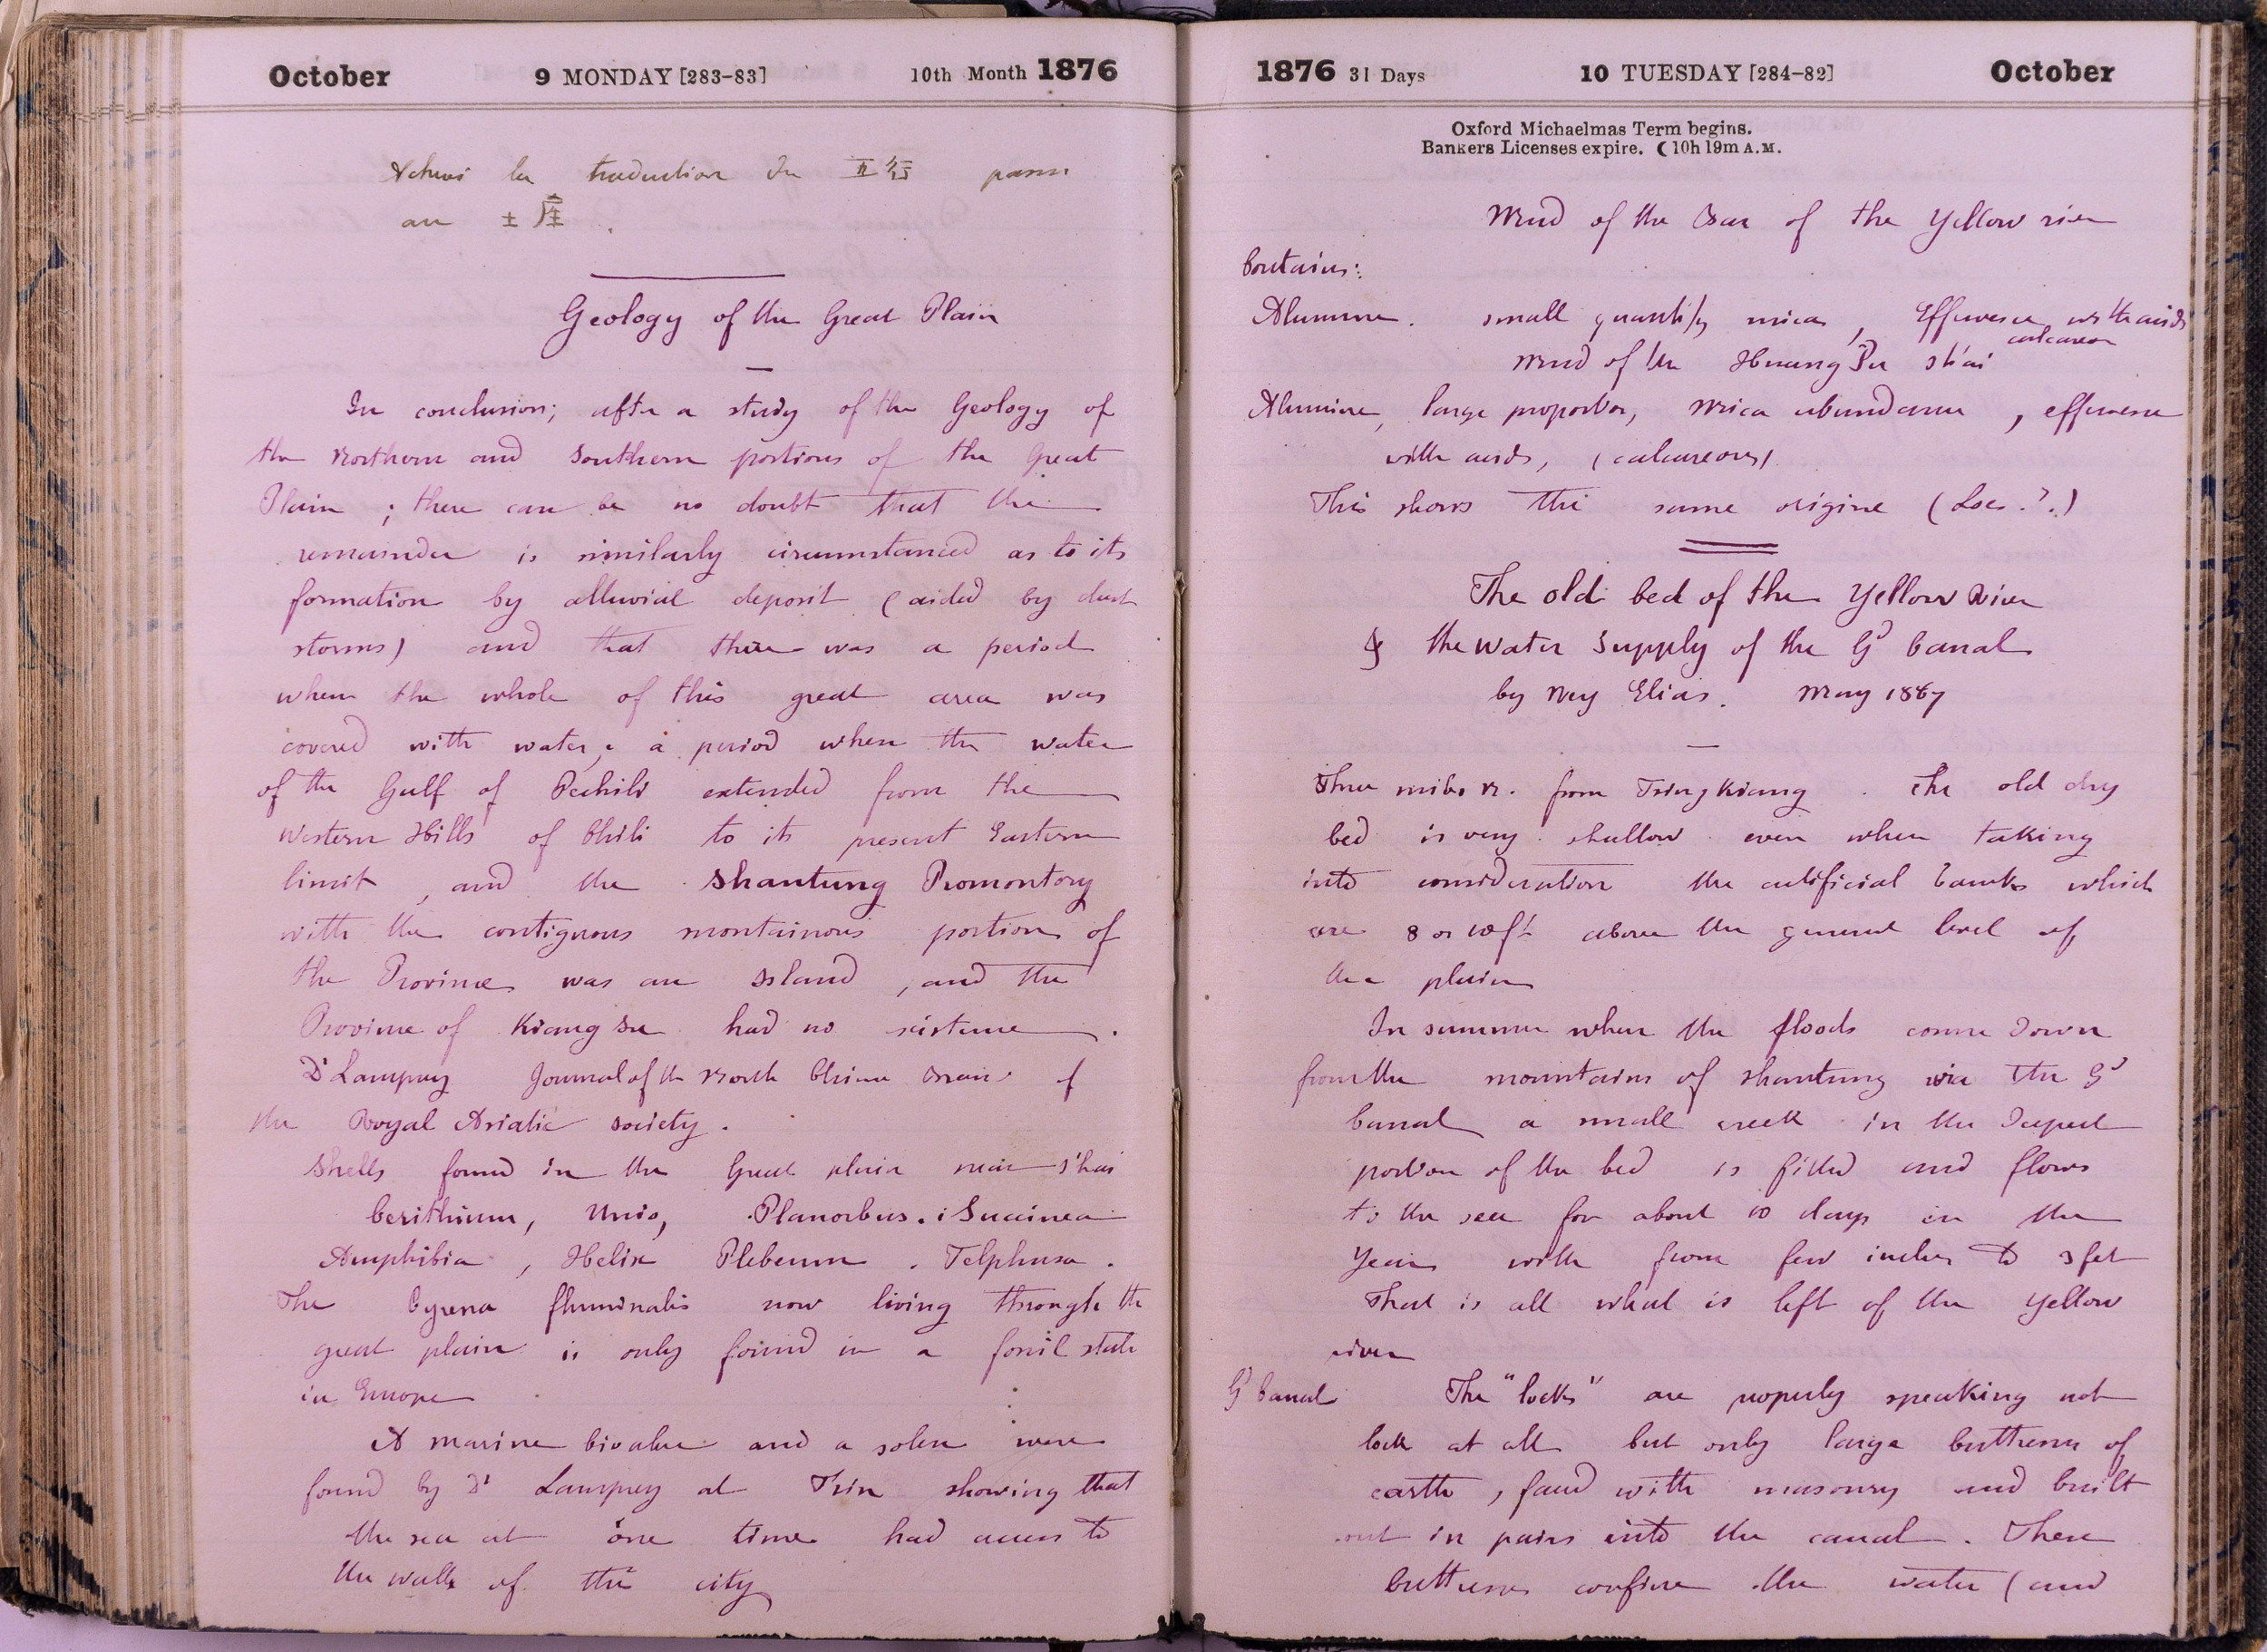 October 9 MONDAY [283-83] 10th Month 1876
Achevé la traduction du 五行 passé
au 土産.
Geology of the Great Plain
In conclusion; after a study of the Geology of
the Northern and Southern portions of the Great
Plain; there can be no doubt that the
remainder is similarly circumstanced as to its
formation by alluvial deposit (aided by dust
storms) and that there was a period
when the whole of this great area was
covered with water, a period when the water
of the Gulf of Pechili extended from the
Western Hills of Chili to its present Eastern
limit, and the Shantung Promontory
with the contiguous montainous portion of
the Province was an Island, and the
Province of Kiangsu had no existence.
Dr Lamprey Journal of the North China Branch of
the Royal Asiatic Society.
Shells found in the Great plain near S'hai
Cerithium, Unio, Planorbus. Succinea
Amphibia, Helix Plebeum. Telphusa.
The Cyrena fluminalis now living through the
great plain is only found in a fossil state
in Europe
A marine bivalve and a solen were
found by Dr Lamprey at Tsin showing that
the sea at one time had access to
the walls of the city
1876 31 Days 10 TUESDAY [284-82] October
Oxford Michaelmas Term begins.
Bankers Licenses expire. ☾ 10h 19m A.M.
Mud of the Bar of the Yellow river
Contains:
Alumine. small quantity mica, Effervesce with acids
calcareous
Mud of the Huang Pu S'hai
Alumine, large proportion, Mica abundance, effervesce
with acids, (calcareous)
This shows the same origine (does?.)
The old bed of the Yellow River
& the Water Supply of the Gd Canal
by Ney Elias. May 1867
Three miles N. from Tsing Kiang. The old dry
bed is very shallow even when taking
into consideration the artificial banks which
are 8 or 10 ft above the general level of
the plain
In summer when the floods come down
from the mountains of Shantung via the Gd
Canal a small creek in the deepest
portion of the bed is filled and flows
to the sea for about 10 days in the
Year with from few inches to 3 feet
That is all what is left of the Yellow
river
Gd Canal The "locks" are properly speaking not
lock at all but only large buttresses of
earth, faced with masonry and built
out in pairs into the canal. These
buttresses confine the water (and